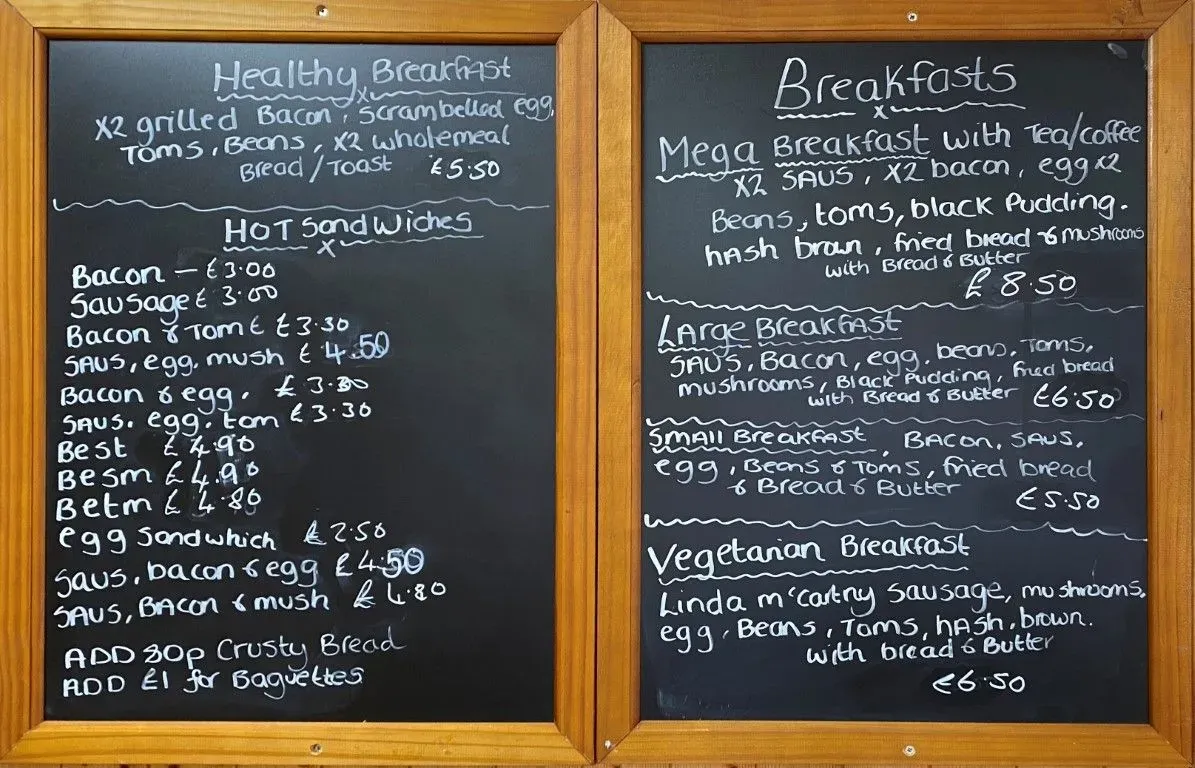 Healthy Breakfast
x
X2 grilled Bacon, Scrambelled egg,
Toms, Beans, X2 wholemeal
Bread/Toast £5.50
HOT SandWiches
x
Bacon – £3.00
Sausage £ 3.00
Bacon & Tom £ £3.30
SAUS, egg, mush £ 4.50
Bacon & egg. £ 3.30
SAUS. egg. tom £3.30
Best £4.90
Besm £4.90
Betm £4.80
egg Sandwhich £2.50
Saus, bacon & egg £4.50
SAUS, BAcon & mush £4.80
ADD 30p Crusty Bread
ADD £1 for Baguettes
Breakfasts
x
Mega Breakfast with Tea/coffee
X2 SAUS, X2 bacon, egg x2
Beans, toms, black Pudding.
hash brown, fried bread & mushrooms
with Bread & Butter
£8.50
Large Breakfast
SAUS, Bacon, egg, beans, Toms,
mushrooms, Black Pudding, fried bread
with Bread & Butter £6.50
Small Breakfast, BACON, SAUS,
egg, Beans & Toms, fried bread
& Bread & Butter
£5.50
Vegetarian Breakfast
Linda m'cartny Sausage, mushrooms,
egg, Beans, Toms, hash, brown.
with bread & Butter
£6.50